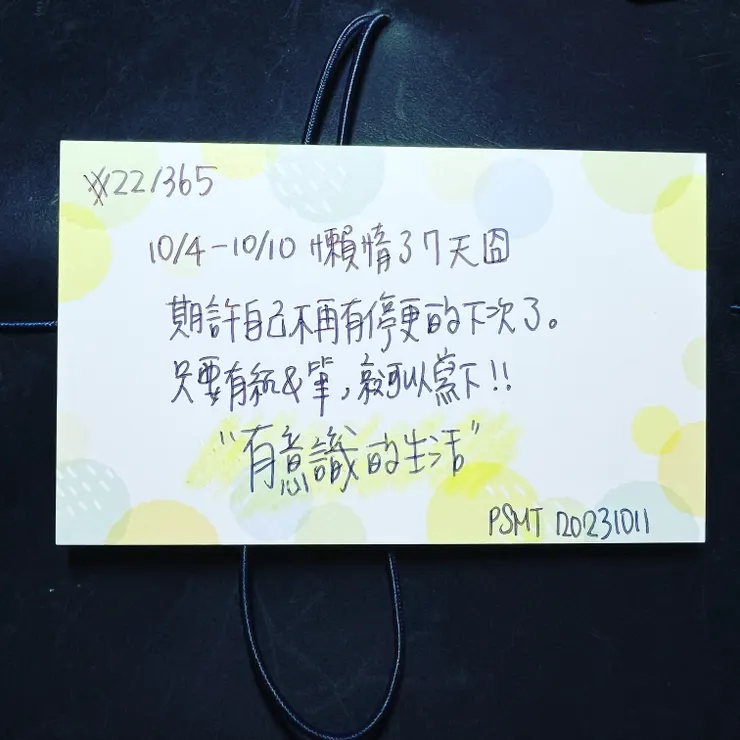 #22/365
10/4-10/10 懶惰了7天囧
期許自己不再有停更的下次了。
只要有紙&筆,就可以寫下!!
"有意識的生活"
PSMT 20231011